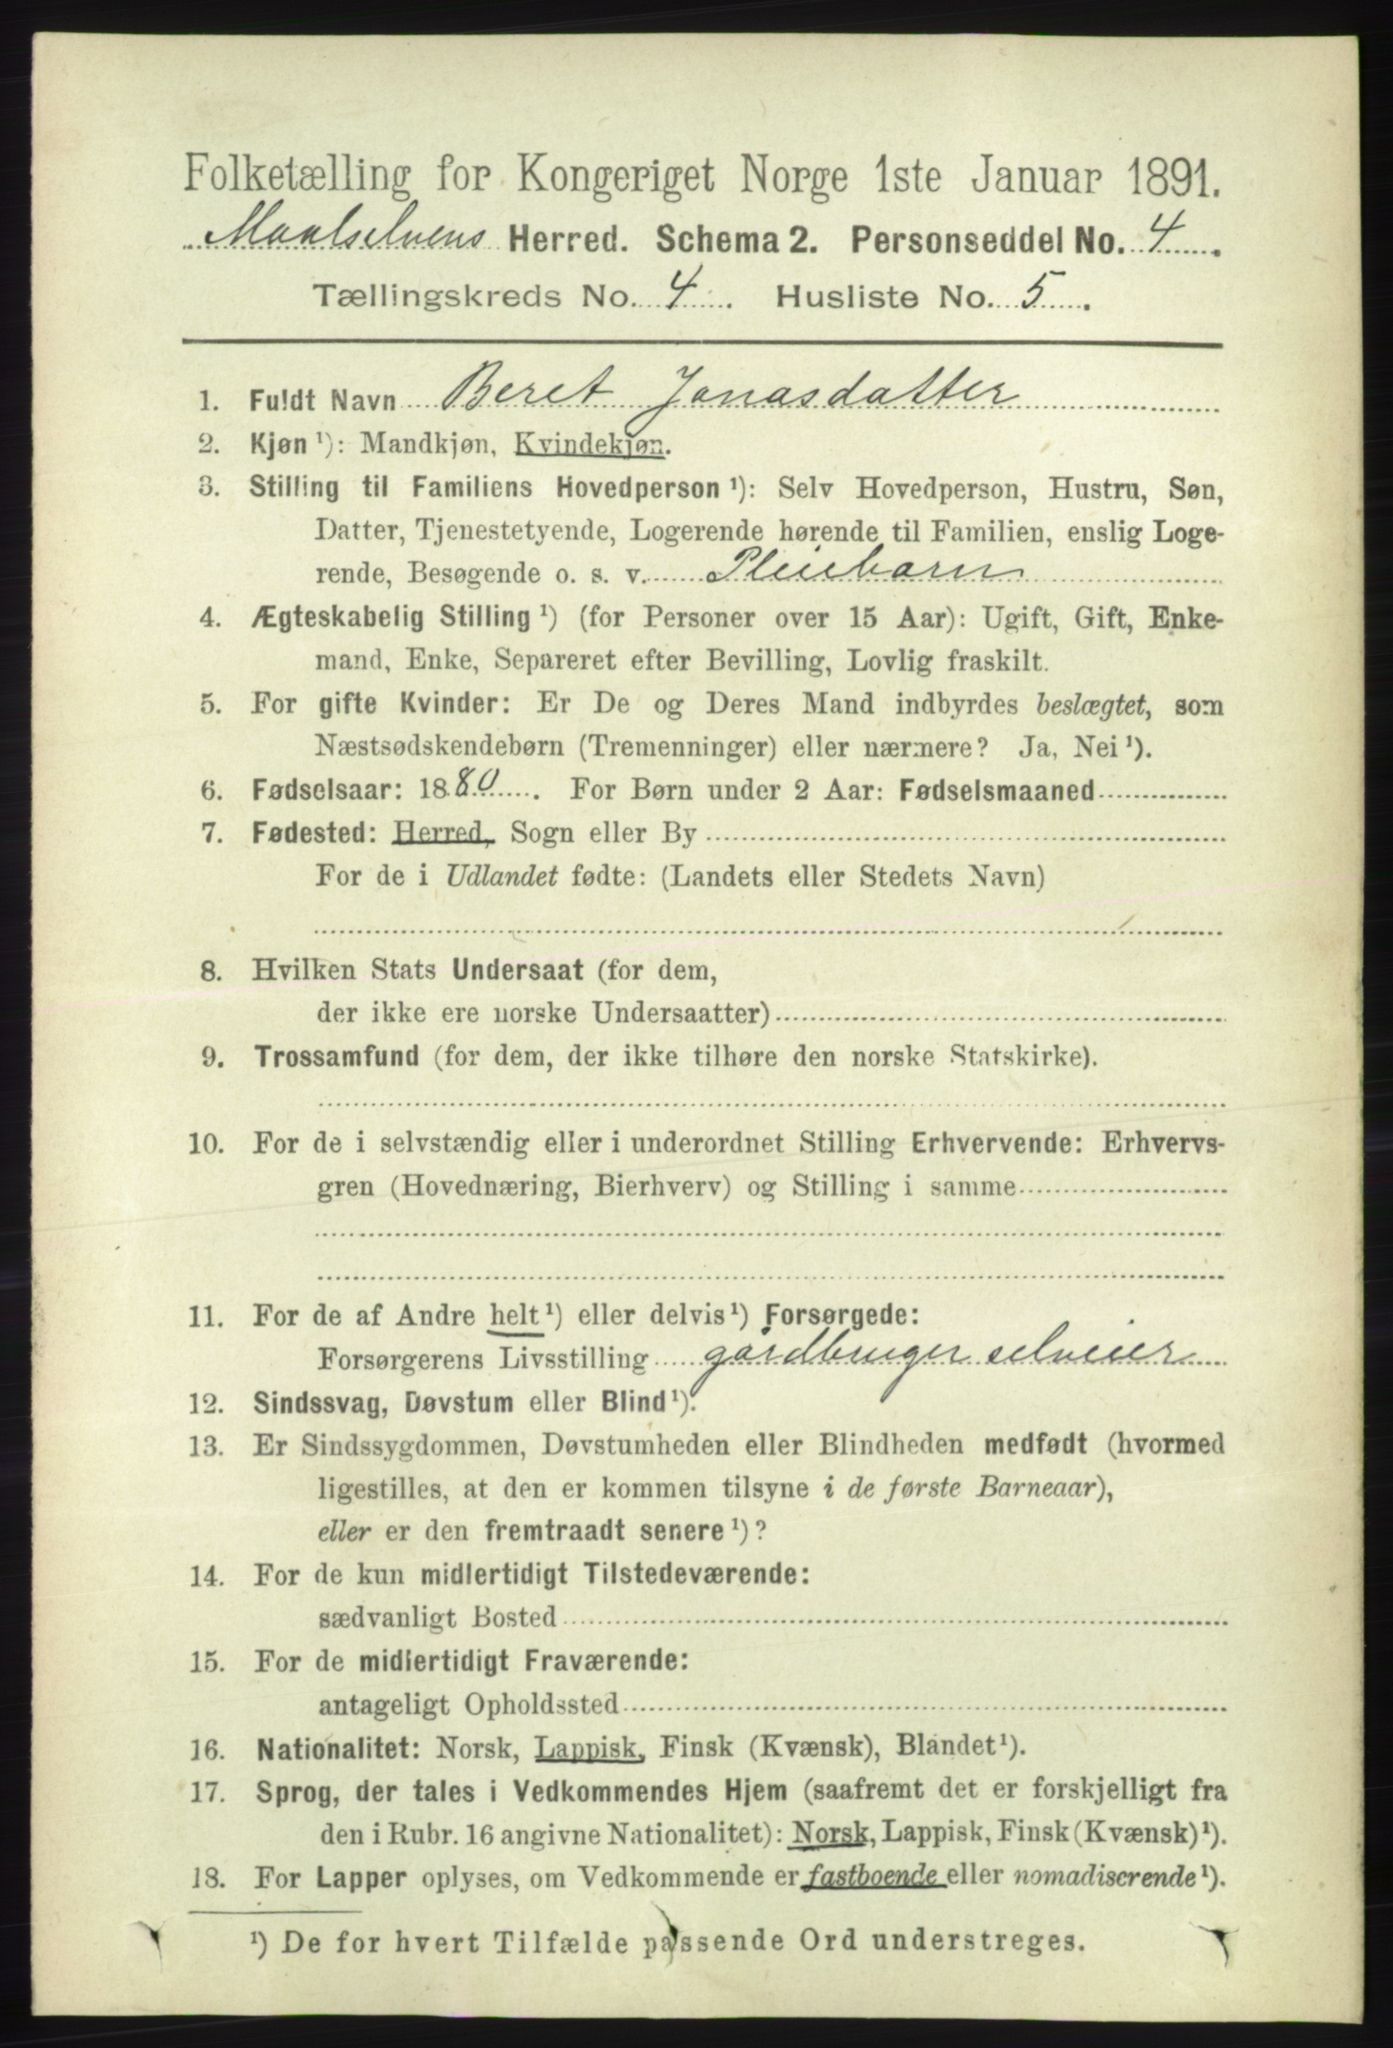 Folketælling for Kongeriget Norge 1ste Januar 1891.
Maalselvens Herred. Schema 2. Personseddel No. 4.
Tællingskreds No. 4. Husliste No. 5.
1. Fuldt Navn Beret Jonasdatter
2. Kjøn ¹): Mandkjøn, Kvindekjøn.
3. Stilling til Familiens Hovedperson ¹): Selv Hovedperson, Hustru, Søn,
Datter, Tjenestetyende, Logerende hørende til Familien, enslig Loge-
rende, Besøgende o. s. v. Pleiebarn
4. Ægteskabelig Stilling ¹) (for Personer over 15 Aar): Ugift, Gift, Enke-
mand, Enke, Separeret efter Bevilling, Lovlig fraskilt.
5. For gifte Kvinder: Er De og Deres Mand indbyrdes beslægtet, som
Næstsødskendebørn (Tremenninger) eller nærmere? Ja, Nei ¹).
6. Fødselsaar: 1880. For Børn under 2 Aar: Fødselsmaaned
7. Fødested: Herred, Sogn eller By
For de i Udlandet fødte: (Landets eller Stedets Navn)
8. Hvilken Stats Undersaat (for dem,
der ikke ere norske Undersaatter)
9. Trossamfund (for dem, der ikke tilhøre den norske Statskirke).
10. For de i selvstændig eller i underordnet Stilling Erhvervende: Erhvervs-
gren (Hovednæring, Bierhverv) og Stilling i samme
11. For de af Andre helt ¹) eller delvis ¹) Forsørgede:
Forsørgerens Livsstilling gårdbruger selveier
12. Sindssvag, Døvstum eller Blind ¹).
13. Er Sindssygdommen, Døvstumheden eller Blindheden medfødt (hvormed
ligestilles, at den er kommen tilsyne i de første Barneaar),
eller er den fremtraadt senere ¹)?
14. For de kun midlertidigt Tilstedeværende:
sædvanligt Bosted
15. For de midlertidigt Fraværende:
antageligt Opholdssted
16. Nationalitet: Norsk, Lappisk, Finsk (Kvænsk), Blandet ¹).
17. Sprog, der tales i Vedkommendes Hjem (saafremt det er forskjelligt fra
den i Rubr. 16 angivne Nationalitet): Norsk, Lappisk, Finsk (Kvænsk) ¹).
18. For Lapper oplyses, om Vedkommende er fastboende eller nomadiserende ¹).
¹) De for hvert Tilfælde passende Ord understreges.